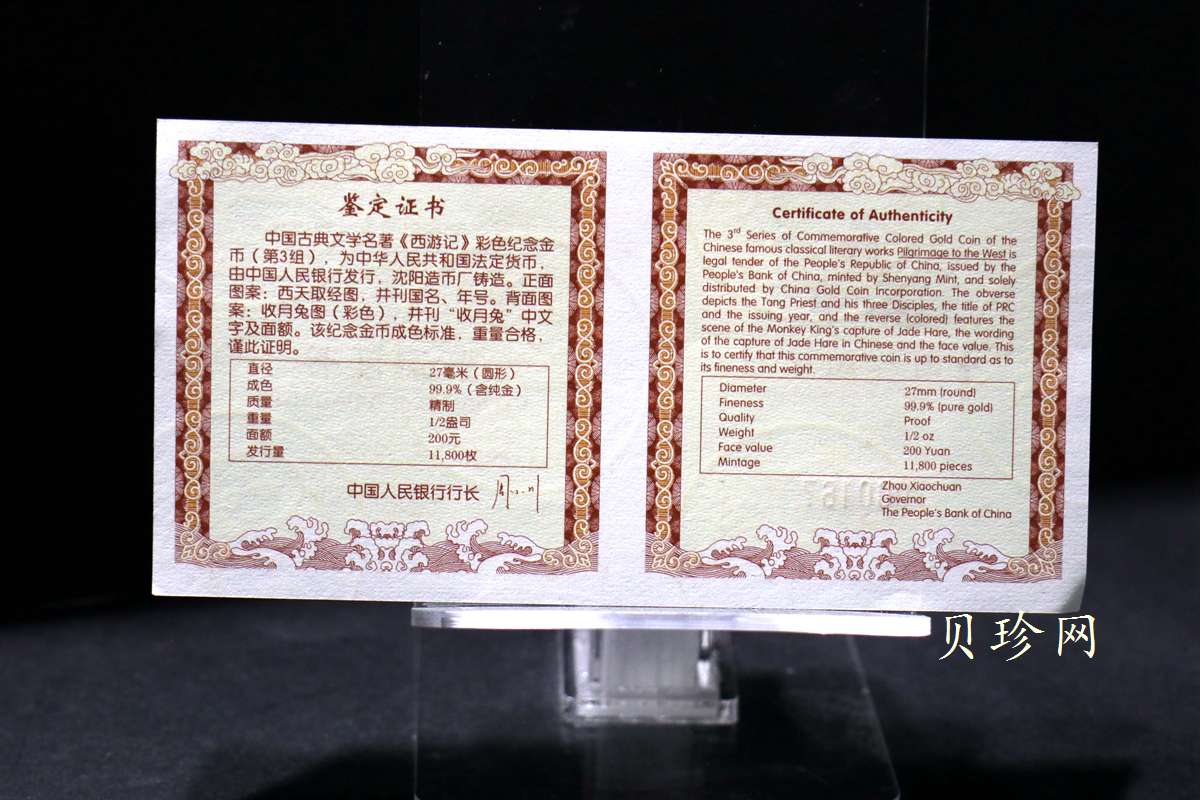 鉴定证书
中国古典文学名著《西游记》彩色纪念金
币（第3组），为中华人民共和国法定货币，
由中国人民银行发行，沈阳造币厂铸造。正面
图案：西天取经图，并刊国名、年号。背面图
案：收月兔图（彩色），并刊“收月兔”中文
字及面额。该纪念金币成色标准，重量合格，
谨此证明。
直径 27毫米（圆形）
成色 99.9%（含纯金）
质量 精制
重量 1/2盎司
面额 200元
发行量 11,800枚
中国人民银行行长 周小川
Certificate of Authenticity
The 3rd Series of Commemorative Colored Gold Coin of the
Chinese famous classical literary works Pilgrimage to the West is
legal tender of the People's Republic of China, issued by the
People's Bank of China, minted by Shenyang Mint, and solely
distributed by China Gold Coin Incorporation. The obverse
depicts the Tang Priest and his three Disciples, the title of PRC
and the issuing year, and the reverse (colored) features the
scene of the Monkey King's capture of Jade Hare, the wording
of the capture of Jade Hare in Chinese and the face value. This
is to certify that this commemorative coin is up to standard as to
its fineness and weight.
Diameter 27mm (round)
Fineness 99.9% (pure gold)
Quality Proof
Weight 1/2 oz
Face value 200 Yuan
Mintage 11,800 pieces
Zhou Xiaochuan
Governor
The People's Bank of China
贝珍网